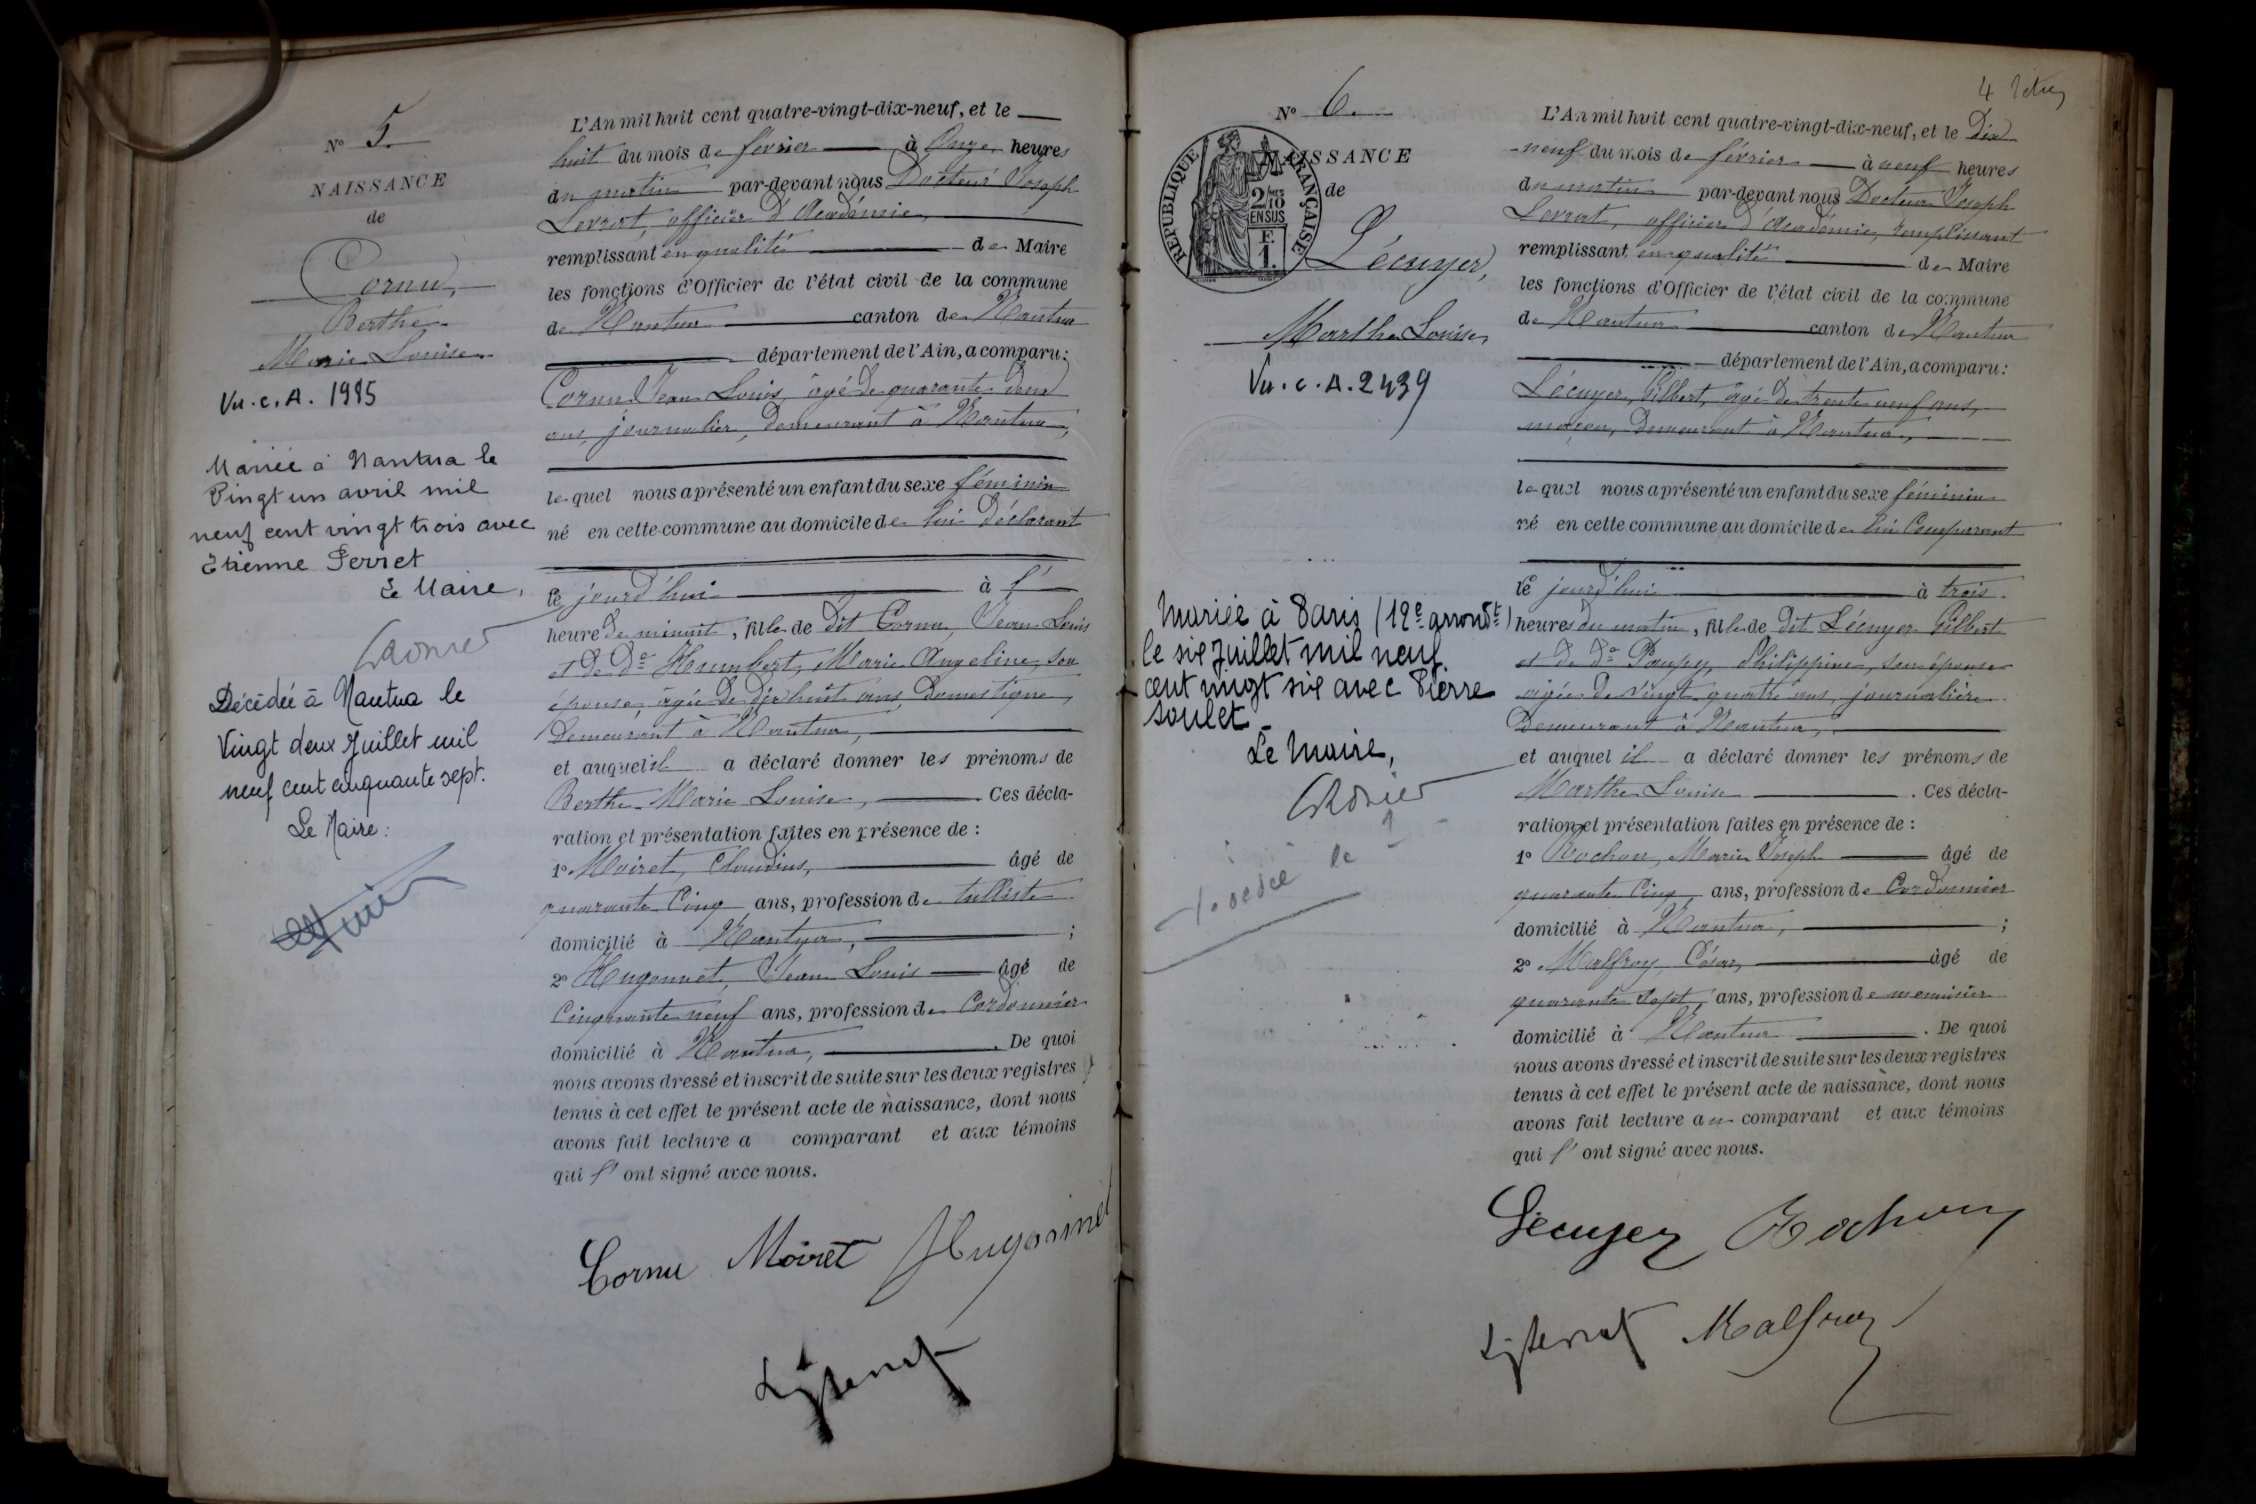 N° 5.
NAISSANCE
de
Cornu,
Berthe
Marie Louise
Vu. C. A. 1985
Mariée à Nantua le
Vingt un avril mil
neuf cent vingt trois avec
Etienne Perret
Le Maire,
Décédée à Nantua le
Vingt deux Juillet mil
neuf cent cinquante sept.
Le Maire:
L'An mil huit cent quatre-vingt-dix-neuf, et le
huit du mois de février à Onze heures
du matin par-devant nous Docteur Joseph
officier d'Académie,
remplissant en qualité de Maire
les fonctions d'Officier de l'état civil de la commune
de Nantua canton de Nantua
département de l'Ain, a comparu:
Cornu Jean Louis, âgé de quarante deux
ans, journalier, demeurant à Nantua,
lequel nous a présenté un enfant du sexe féminin
né en cette commune au domicile de lui déclarant
le jourd'hui à l'
heure de minuit, fille de dit Cornu, Jean Louis
et de De Humbert, Marie Angeline, son
épouse, âgée de dix huit ans, domestique,
demeurant à Nantua,
et auquel il a déclaré donner les prénoms de
Berthe Marie Louise, Ces décla-
ration et présentation faites en présence de :
1° Moiret, Claudius, âgé de
quarante Cinq ans, profession de tulliste
domicilié à Nantua, ;
2° Hugonnet, Jean Louis âgé de
Cinquante neuf ans, profession de Cordonnier
domicilié à Nantua, . De quoi
nous avons dressé et inscrit de suite sur les deux registres
tenus à cet effet le présent acte de naissance, dont nous
avons fait lecture a comparant et aux témoins
qui l' ont signé avec nous.
Cornu Moiret Hugonnet
4
N° 6.
RÉPUBLIQUE FRANÇAISE
2/10 EN SUS
F. 1.
NAISSANCE
de
Lécuyer,
Marthe Louise,
Vu. C. A. 2439
Mariée à Paris (12e arrondt)
le six Juillet mil neuf
cent vingt six avec Pierre
Soulet
Le Maire,
L'An mil huit cent quatre-vingt-dix-neuf, et le Dix
neuf du mois de février à neuf heures
du matin par-devant nous Docteur Joseph
officier d'Académie, remplissant
remplissant en qualité de Maire
les fonctions d'Officier de l'état civil de la commune
de Nantua canton de Nantua
département de l'Ain, a comparu:
Lécuyer, Gilbert, âgé de trente neuf ans,
maçon, demeurant à Nantua,
lequel nous a présenté un enfant du sexe féminin
né en cette commune au domicile de lui Comparant
le jourd'hui à trois
heures du matin, fille de dit Lécuyer Gilbert
et de De Philippine, son épouse
âgée de vingt quatre ans, journalière
demeurant à Nantua,
et auquel il a déclaré donner les prénoms de
Marthe Louise . Ces décla-
ration et présentation faites en présence de :
1° Rochon, Marie Joseph âgé de
quarante Cinq ans, profession de Cordonnier
domicilié à Nantua, ;
2° Malfroy, César, âgé de
quarante sept ans, profession de menuisier
domicilié à Nantua . De quoi
nous avons dressé et inscrit de suite sur les deux registres
tenus à cet effet le présent acte de naissance, dont nous
avons fait lecture au comparant et aux témoins
qui l' ont signé avec nous.
Lécuyer Rochon
Malfroy